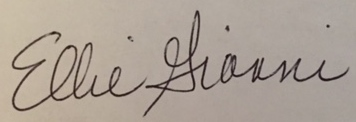 Ellie Gianni